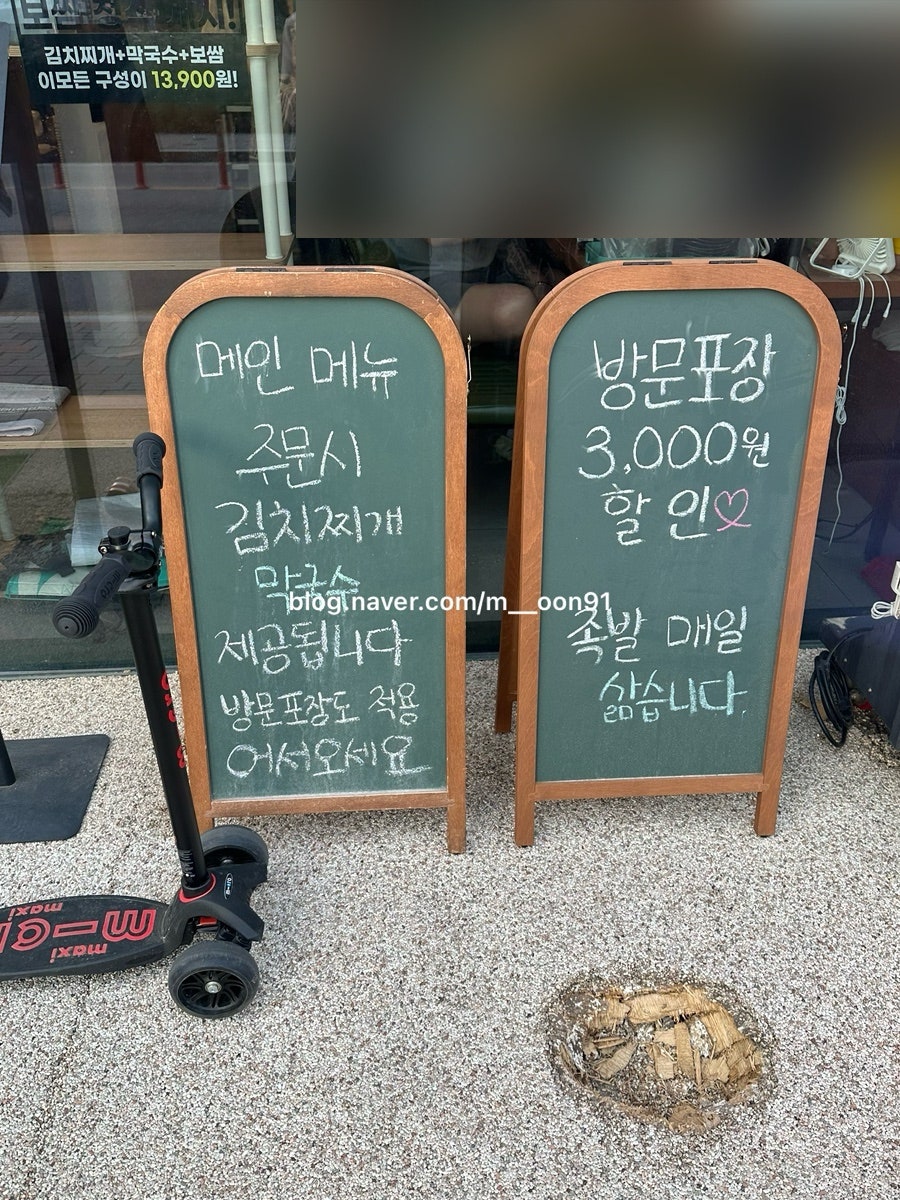 김치찌개+막국수+보쌈
이모든 구성이 13,900원!
메인 메뉴
주문시
김치찌개
막국수
제공됩니다
방문포장도 적용
어서오세요
방문포장
3,000원
할인♡
족발 매일
삶습니다.
blog.naver.com/m__oon91
maxi
maxi